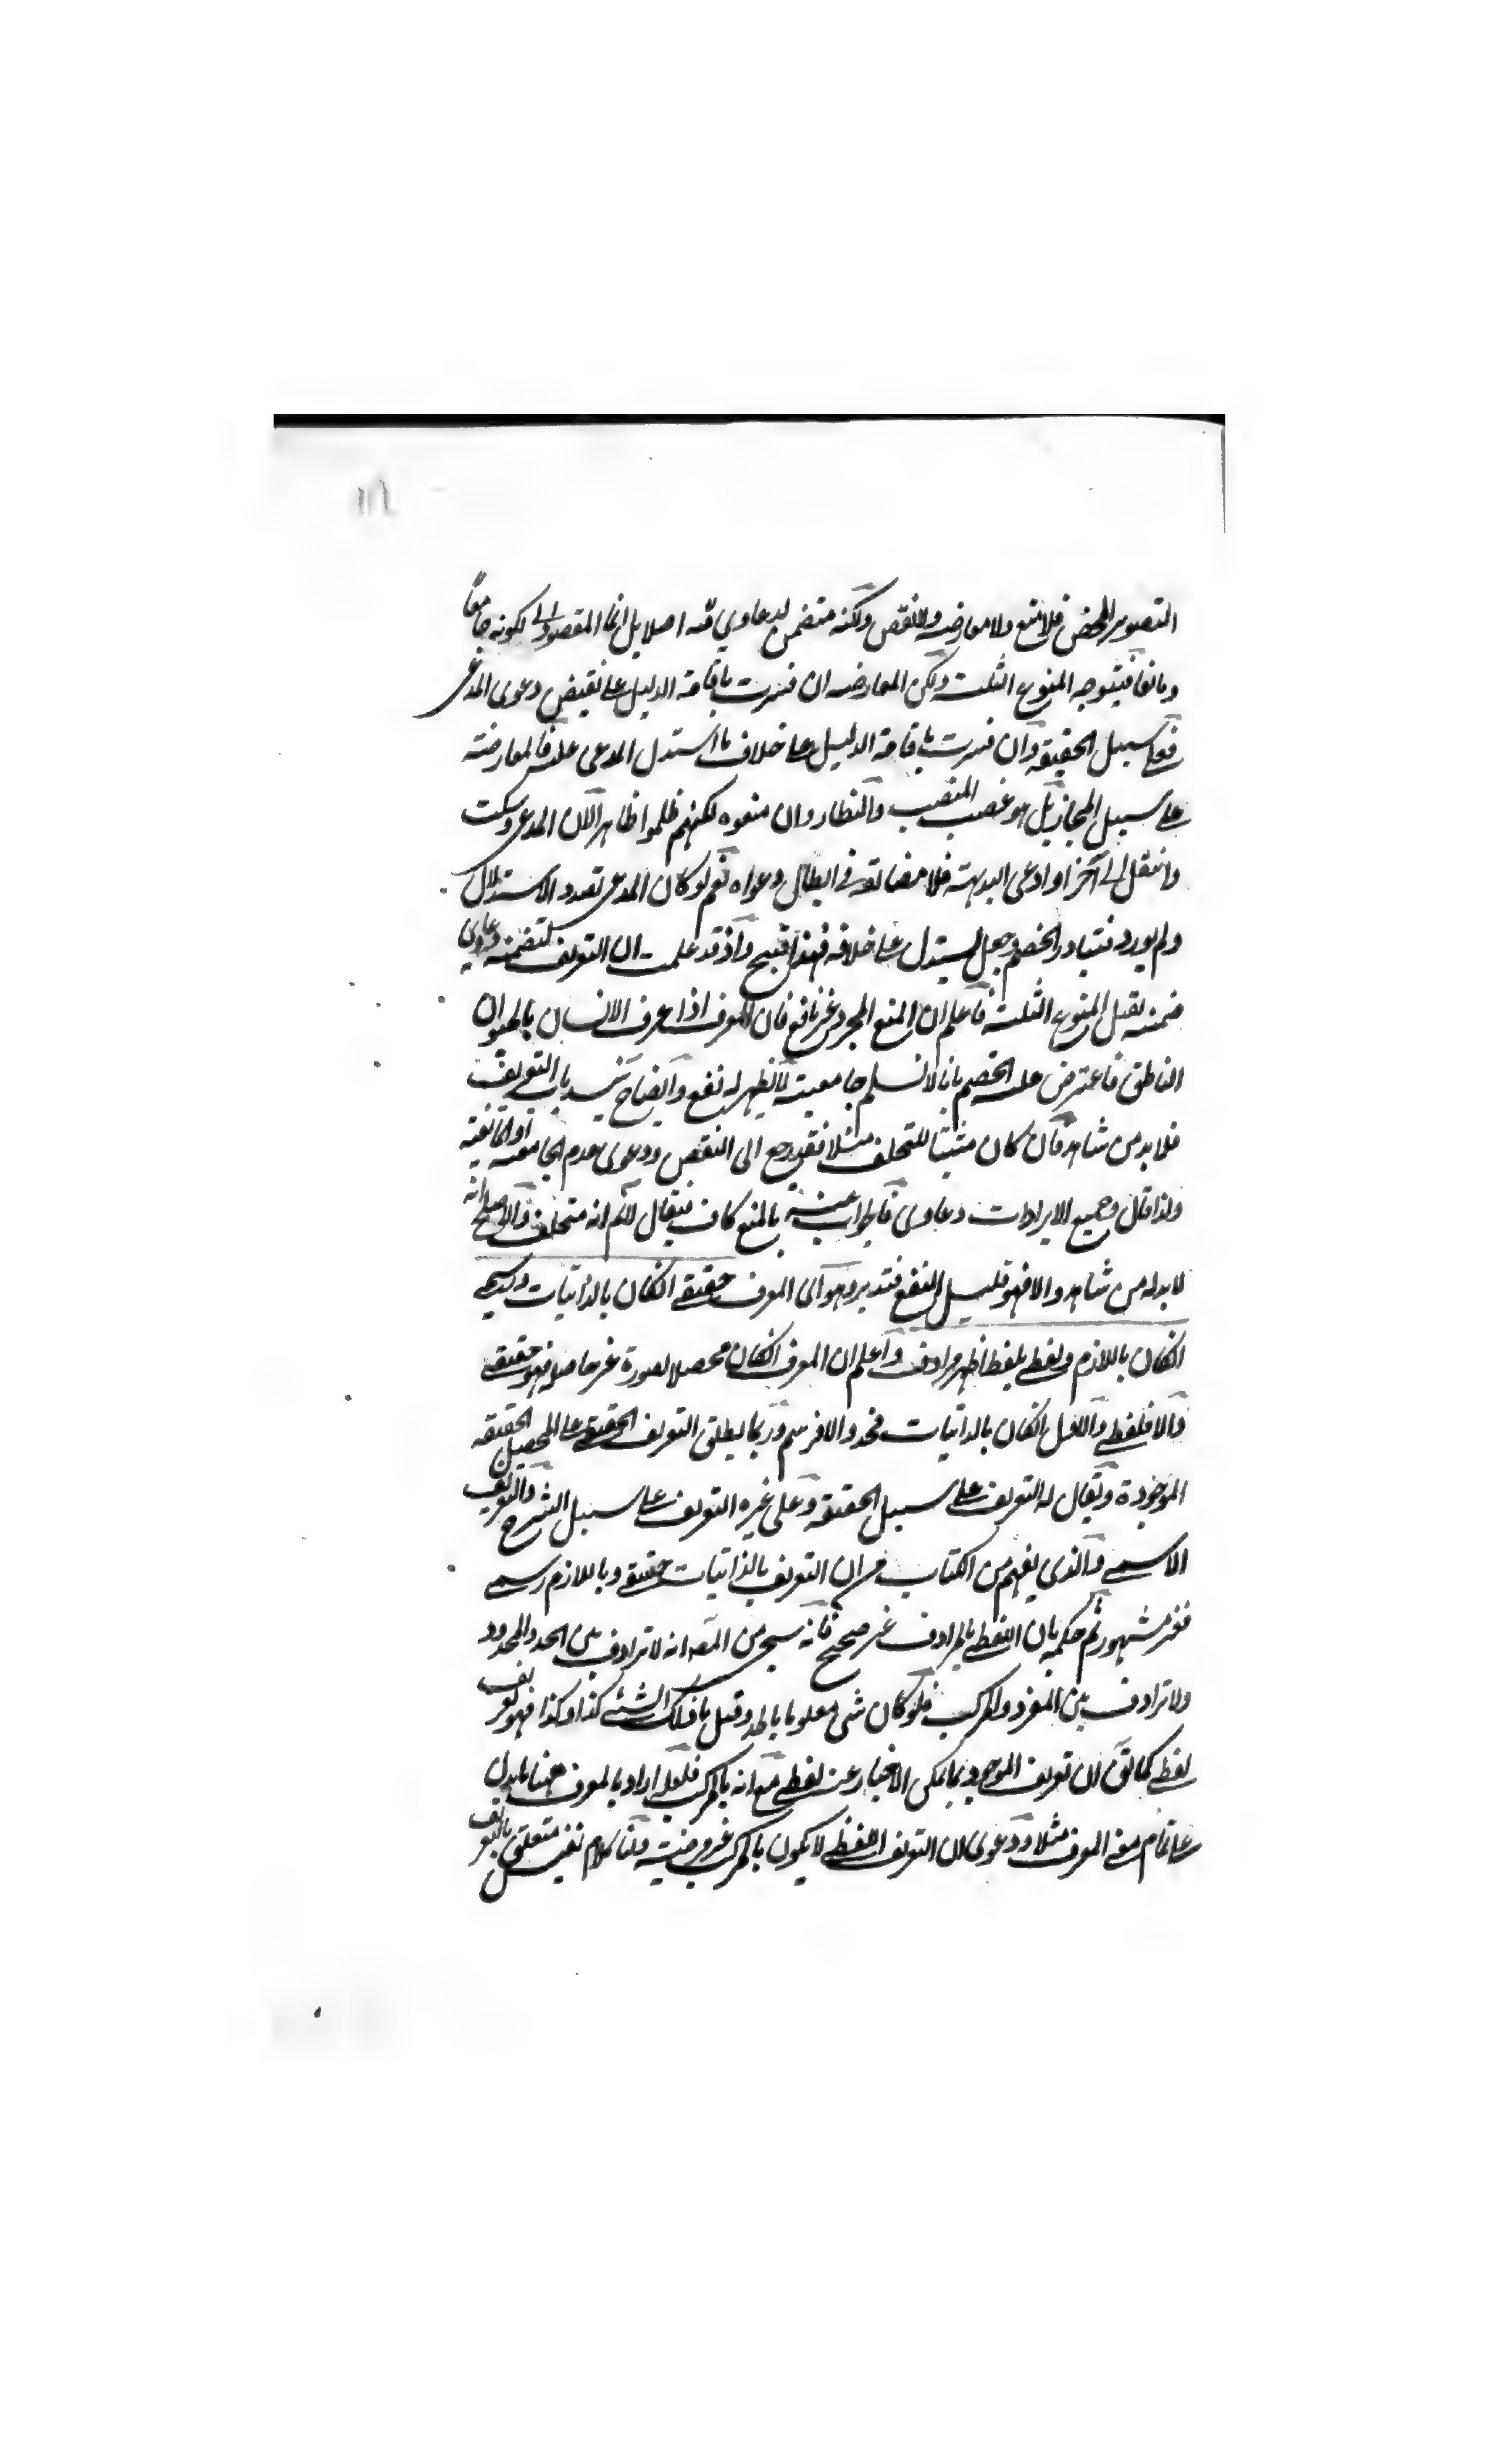 التصوير المحض فلا منع ولا معارضة ولا نقض ولكنه متضمن لدعاوي اصلا بل انما المقصود الى لكونه جامعا
ومانعا فيتوجه المنوع الثلثة ولكن المعارضة ان فسرت باقامة الدليل على نقيض دعوى المدعى
فعلى سبيل الحقيقة وان فسرت باقامة الدليل على خلاف ما استدل المدعى عليه فالمعارضة
على سبيل المجاز بل هو غصب المنصب والنظار وان منعوه لكنهم ظلموا ظاهرا لان المدعى سكت
وانتقل الى آخر او ادعى البديهة فلا مضائقة فى ابطال دعواه نعم لو كان المدعى تصدد الاستدلال
ولم يورد فتبادر الخصم وجعل يستدل على خلافه فهذا قبيح واذ قد علمت ان التعريف لتضمنه دعاوى
ضمنية يقبل المنوع الثلثة فاعلم ان المنع المجرد غير نافع فان المعرف اذا عرف الانسان بالحيوان
الناطق فاعترض عليه الخصم بانا لا نسلم جامعيته لا يظهر له نفع وايضا ح ينسد باب التعريف
فلا بد من شاهد فان كان مثبتا للتخلف مثلا فقد رجع الى النقض ودعوى عدم الجامعية او المانعية
ولذا قال وجميع الايرادات دعاوى فالجواب عنه بالمنع كاف فيقال لانم انه متخلف والاصلح انه
لا بد له من شاهد والا فهو قليل النفع فتدبر وهو اى المعرف حقيقى انكان بالذاتيات ورسمى
انكان باللازم ولفظى بلفظ اظهر مرادف واعلم ان المعرف انكان محصلا لصورة غير حاصلة فهو حقيقى
والا فلفظى والاول انكان بالذاتيات فحد والا فرسم وربما يطلق التعريف الحقيقى على المحصل الحقيقة
الموجودة ويقال له التعريف على سبيل الحقيقة وعلى غيره التعريف على سبيل الشرح والتعريف
الاسمى والذى يفهم من الكتاب من ان التعريف بالذاتيات حقيقى وباللازم رسمى
فغير مشهور ثم حكمه بان اللفظى بالمرادف غير صحيح فانه سيجئ من المصـ انه لا ترادف بين الحد والمحدود
ولا ترادف بين المفرد والمركب فلو كان شئ معلوما بالحد وقيل ما ذلك الشئ كذا وكذا فهو تعريف
لفظى كما تقول ان تعريف الموجود بما يمكن الاخبار عنه لفظى مع انه بالمركب فلعله اراد بالمعرف ههنا ما يدل
على تمام معنى المعرف مثلا ودعوى ان التعريف اللفظى لا يكون بالمركب غير مرضية ولنا كلام نفيس متعلق بالتعريف